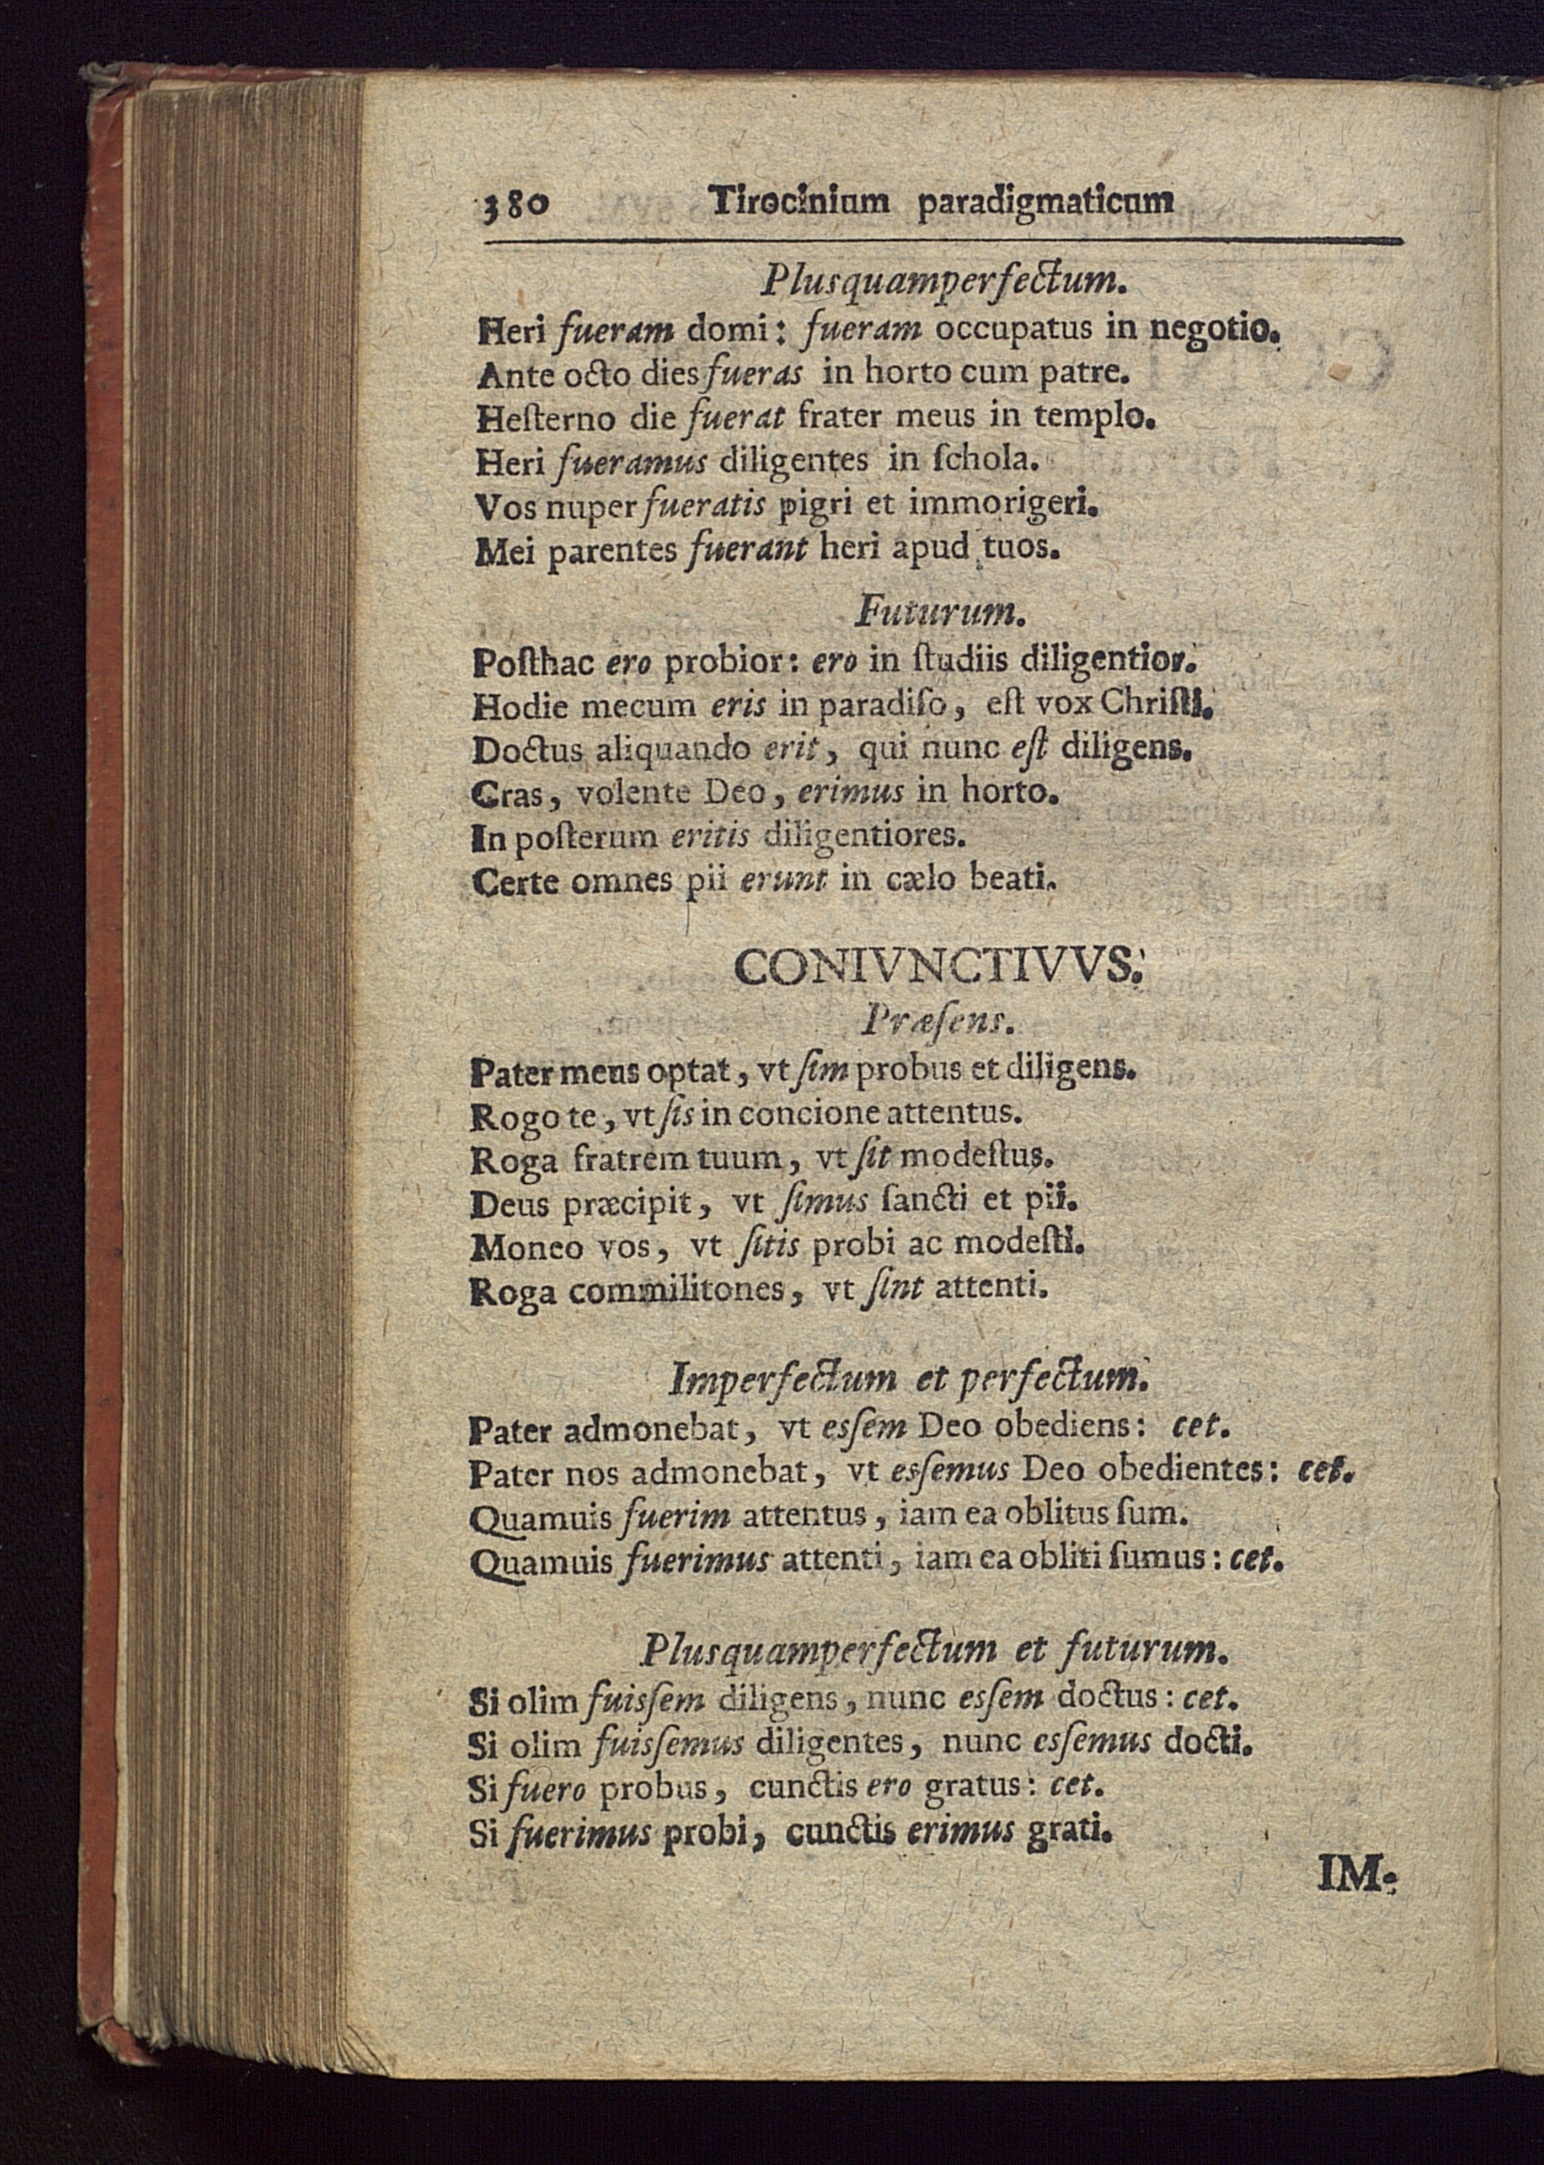 380 Tirocinium paradigmaticum
Plusquamperfectum.
Heri fueram domi: fueram occupatus in negotio.
Ante octo dies fueras in horto cum patre.
Heſterno die fuerat frater meus in templo.
Heri fueramus diligentes in ſchola.
Vos nuper fueratis pigri et immorigeri.
Mei parentes fuerant heri apud tuos.
Futurum.
Poſthac ero probior: ero in ſtudiis diligentior.
Hodie mecum eris in paradiſo, eſt vox Chriſti.
Doctus aliquando erit, qui nunc eſt diligens.
Cras, volente Deo, erimus in horto.
In poſterum eritis diligentiores.
Certe omnes pii erunt in cælo beati.
CONIVNCTIVVS.
Præſens.
Pater meus optat, vt ſim probus et diligens.
Rogo te, vt ſis in concione attentus.
Roga fratrem tuum, vt ſit modeſtus.
Deus præcipit, vt ſimus ſancti et pii.
Moneo vos, vt ſitis probi ac modeſti.
Roga commilitones, vt ſint attenti.
Imperfectum et perfectum.
Pater admonebat, vt esſem Deo obediens: cet.
Pater nos admonebat, vt esſemus Deo obedientes: cet.
Quamuis fuerim attentus, iam ea oblitus ſum.
Quamuis fuerimus attenti, iam ea obliti ſumus: cet.
Plusquamperfectum et futurum.
Si olim fuisſem diligens, nunc esſem doctus: cet.
Si olim fuisſemus diligentes, nunc esſemus docti.
Si fuero probus, cunctis ero gratus: cet.
Si fuerimus probi, cunctis erimus grati.
IM-